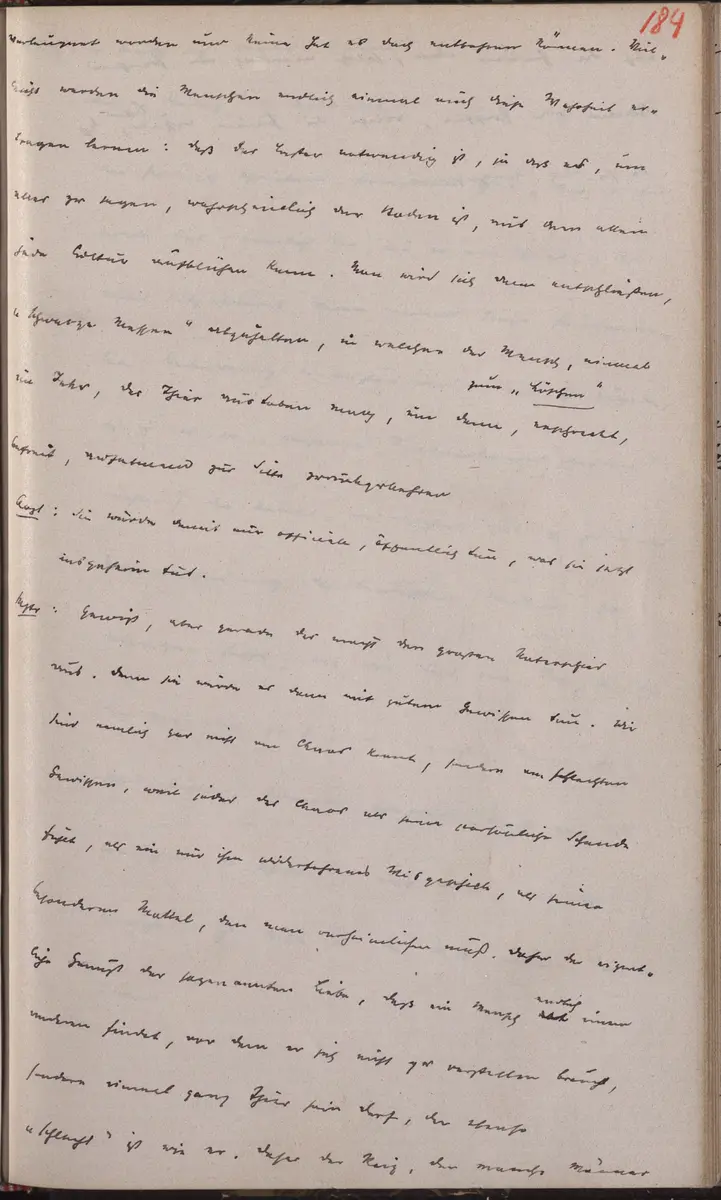 184
verleugnet worden und keine hat es doch entbehren können. Viel-
leicht werden die Menschen endlich einmal auch diese Wahrheit er-
tragen lernen: daß das Laster notwendig ist, ja daß es, um
alles zu sagen, wahrscheinlich der Boden ist, aus dem allein
jede Cultur aufblühen kann. Man wird sich dann entschließen,
„schwarze Messen" abzuhalten, in welchen der Mensch, einmal
zum „Löschen"
im Jahr, das Thier austoben mag, um dann, erschreckt,
befreit, aufatmend zur Sitte zurückzukehren
Arzt: Sie würde damit nur officiell, öffentlich tun, was sie jetzt
insgeheim tut.
Mstr: Gewiß, aber gerade das macht den großen Unterschied
aus. Denn sie würde es dann mit gutem Gewissen tun. Wir
sind nemlich gar nicht am Chaos krank, sondern am schlechten
Gewissen, weil jeder das Chaos als seine persönliche Schande
fühlt, als ein nur ihm widerfahrenes Misgeschick, als seinen
besonderen Makel, den man verheimlichen muß. Daher der eigent-
liche Genuß der sogenannten Liebe, daß ein Mensch endlich einen
anderen findet, vor dem er sich nicht zu verstellen braucht,
sondern einmal ganz Thier sein darf, der ebenso
„schlecht" ist wie er. Daher der Reiz, den manche Männer